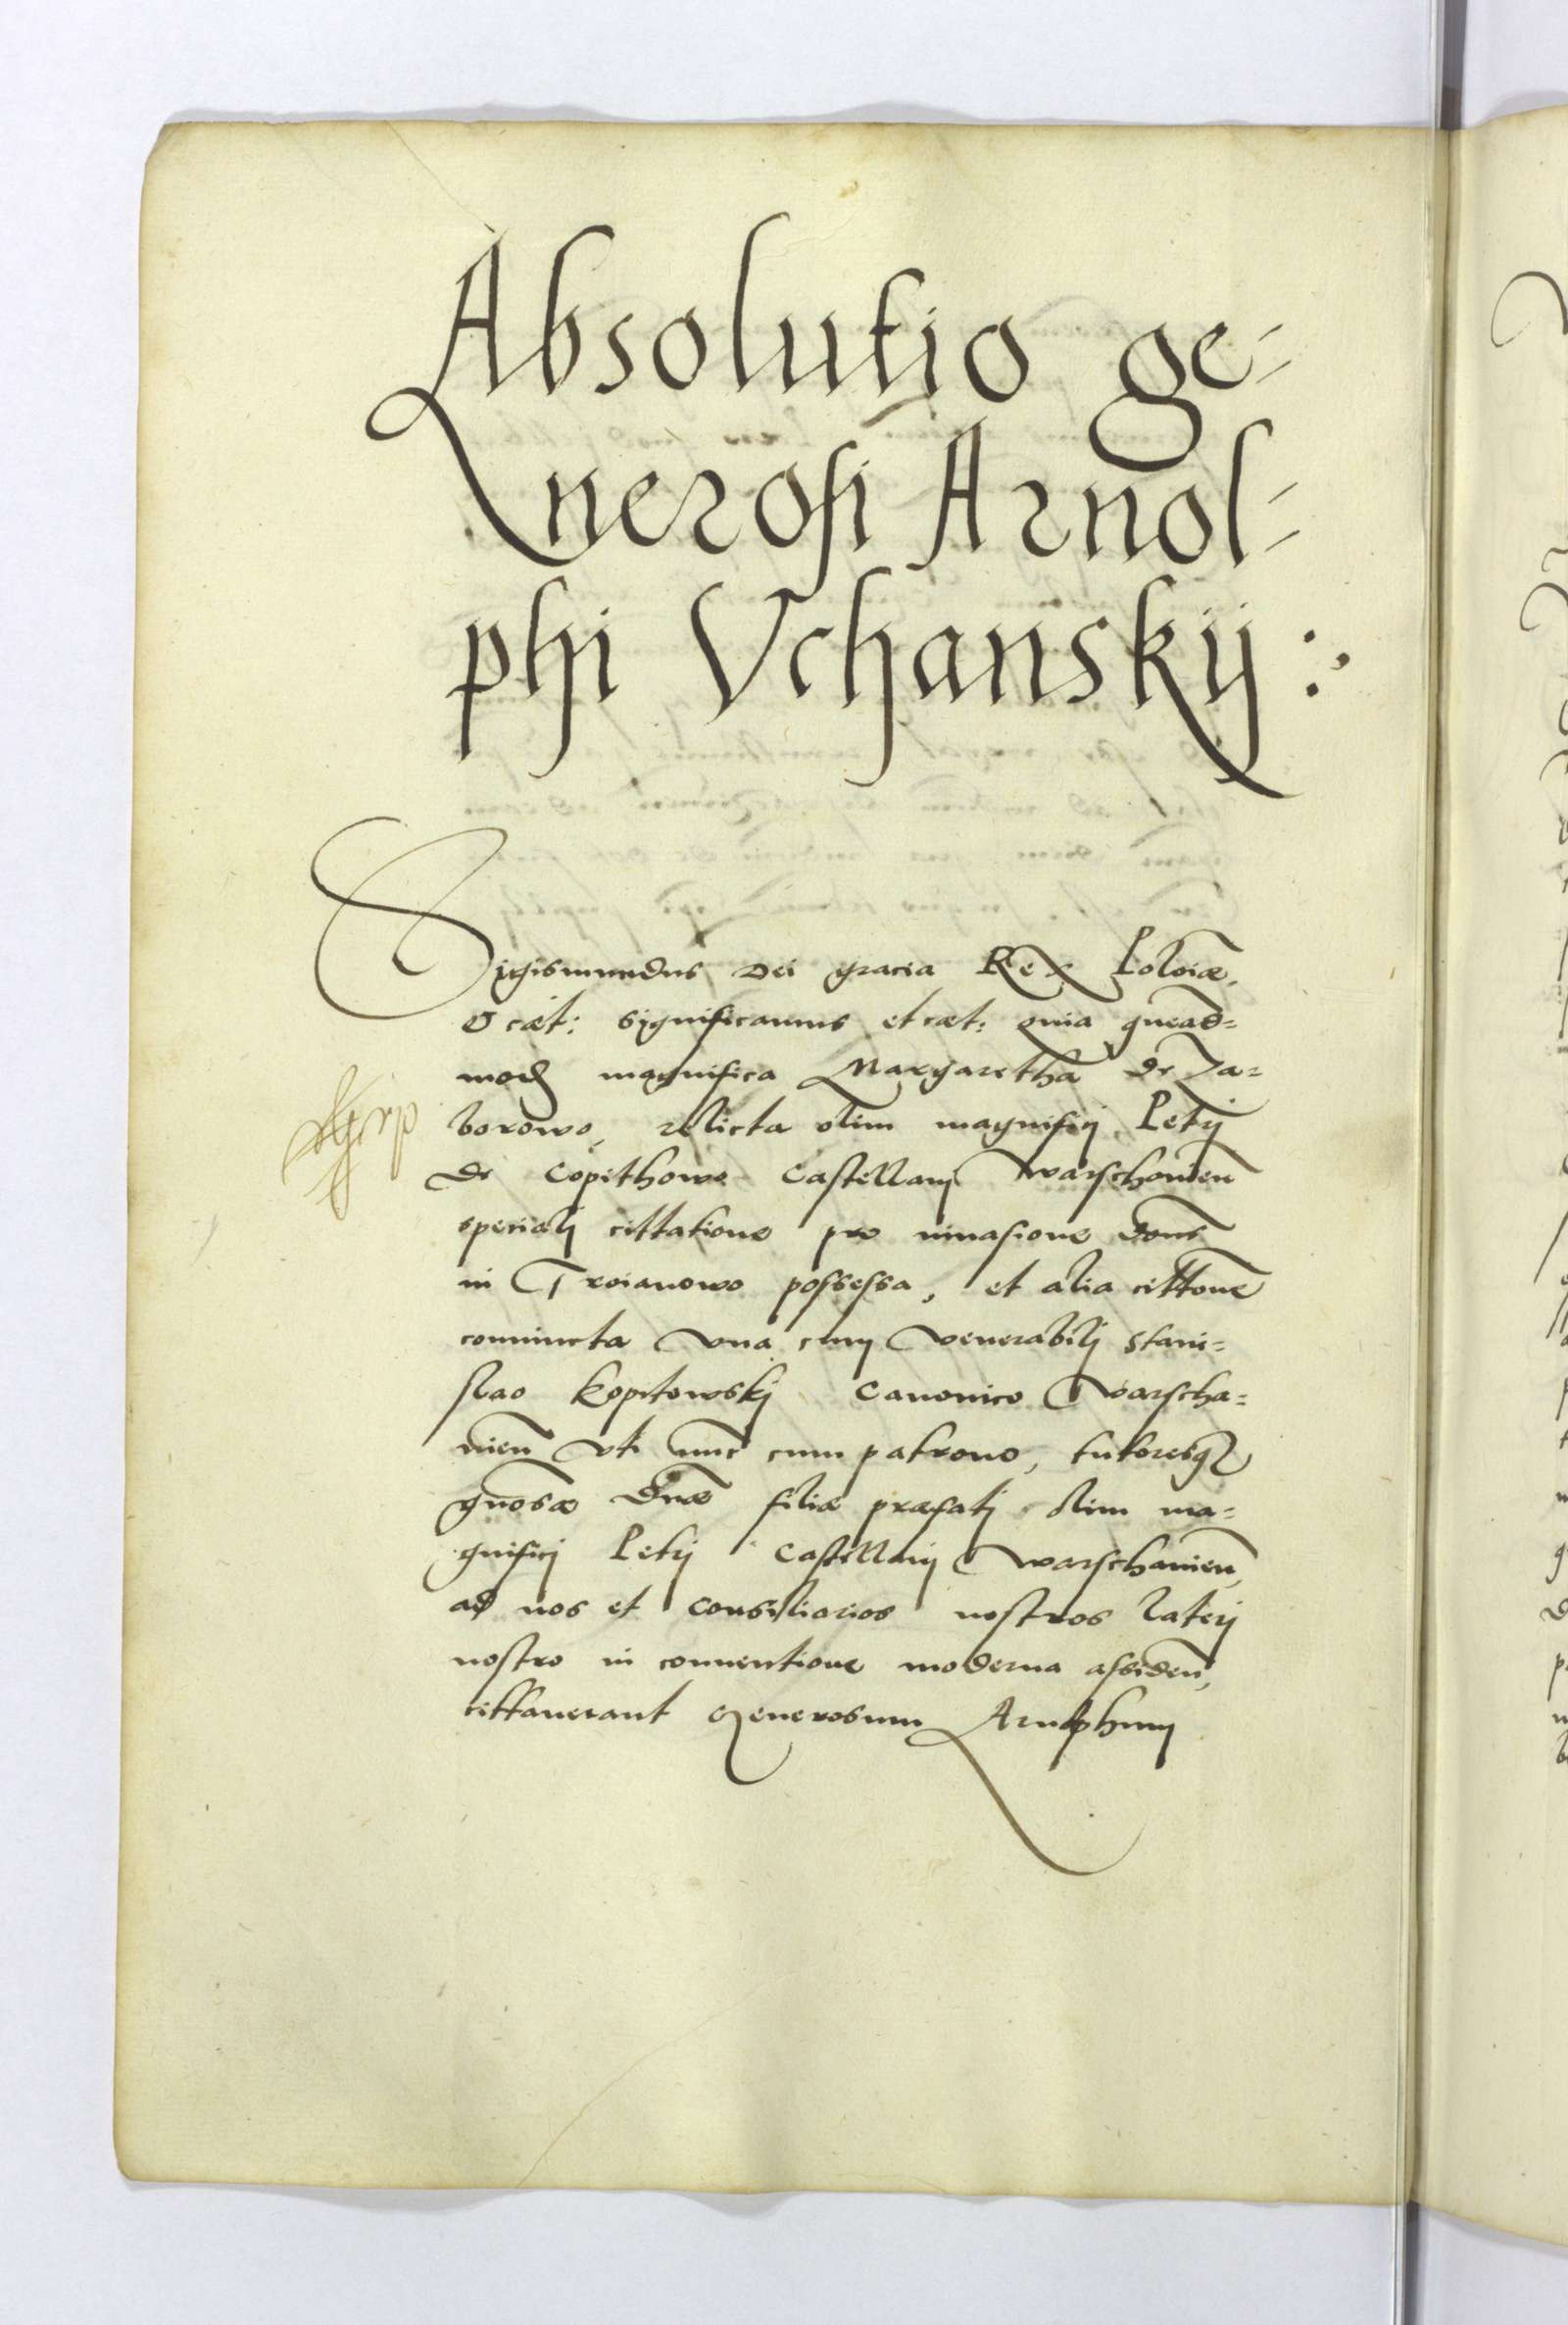 Absolutio ge-
nerosi Arnol-
phi Vchanskij :
Sigismundus Dei gracia Rex Poloniæ,
& cæt: significamus et cæt: quia quead=
mod magnifica Margaretha de Za=
borowo, relicta olim magnificj Petrj
de Copithowo Castellanj Warschouien
specialj cittatione pro inuasione domus
in Troianowo possessa, et alia cittone
conuincta vna cum venerabilj Stani=
slao Kopitowskj Canonico Warscha=
uien vti nunc cum patrono, tutoresq
gnosæ Dnæ filiæ præfatj olim ma=
gnificj Petrj Castellanj Warschauien,
ad nos et consiliarios nostros laterj
nostro in conuentione moderna assiden,
cittauerant Generosum Arnolphum